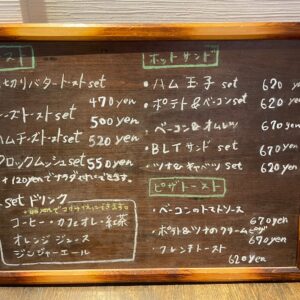 スト
切りバタートースト set
470 yen
ーズトースト set 500 yen
ハムチーズトースト set 520 yen
クロックムッシュ set 550 yen
+120yenでサラダ付にできます。
set ドリンク
コーヒー・カフェオレ・紅茶
オレンジジュース
ジンジャーエール
ホットサンド
・ハム玉子 set 620 yen
・ポテト&ベーコン set 620 yen
・ベーコン&オムレツ 670 yen
・BLTサンド set 670 yen
・ツナ&キャベツ set 620 yen
ピザトースト
・ベーコンのトマトソース
670 yen
・ポテト&ツナのクリームピザ
670 yen
・フレンチトースト
620 yen